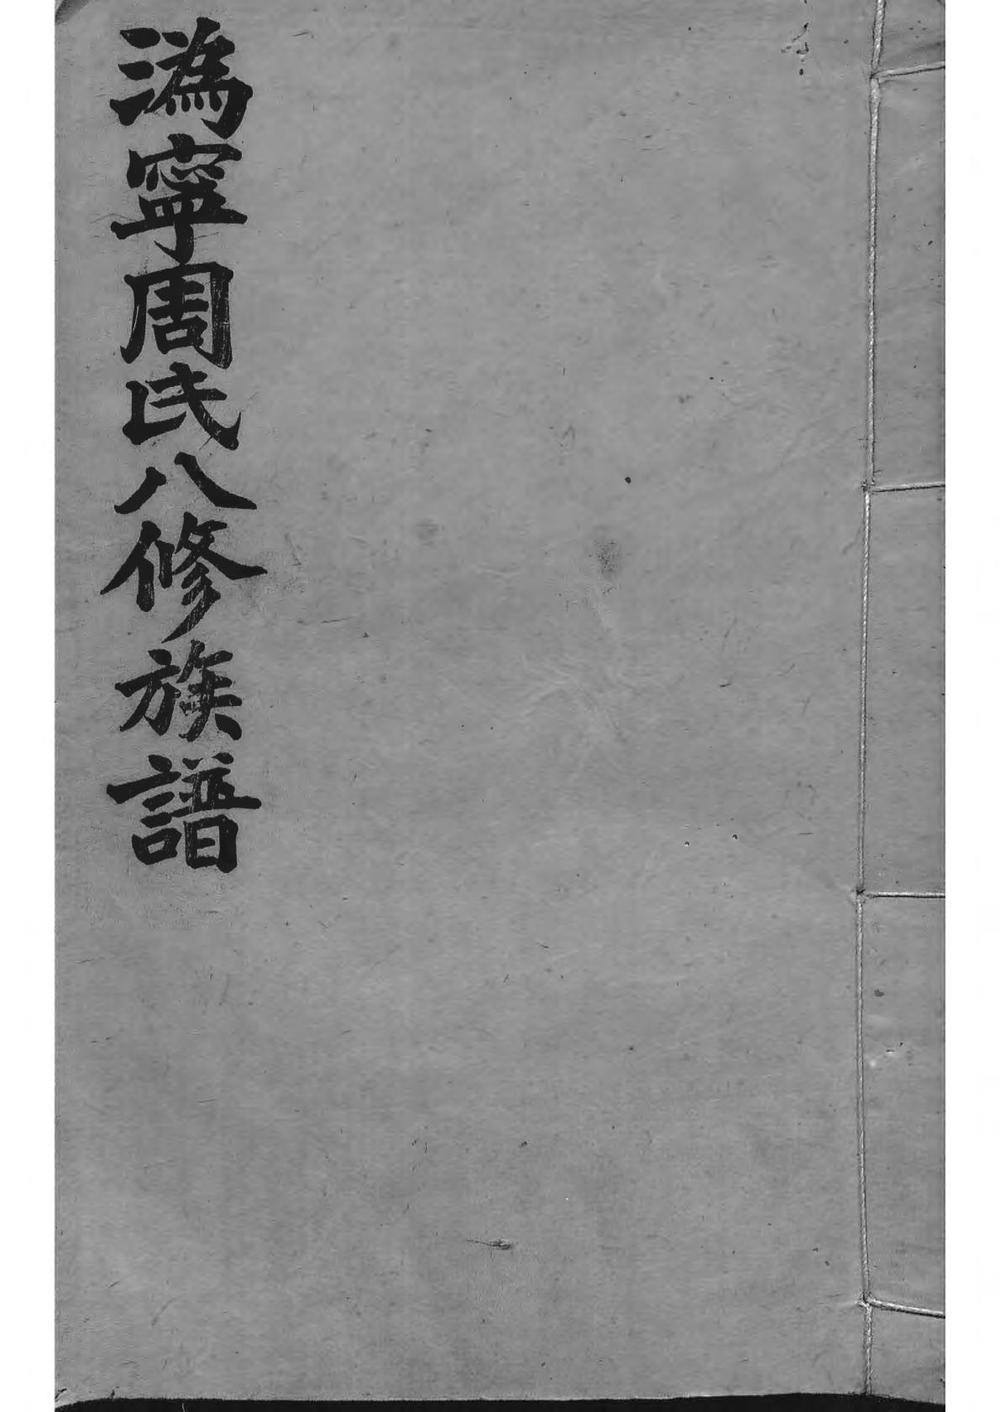 潙寧周氏八修族譜